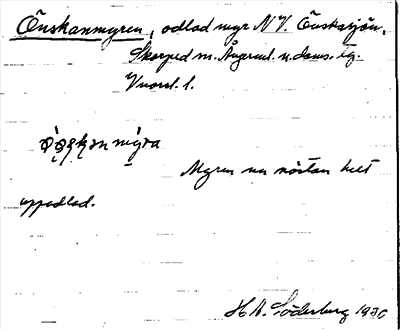 Önskanmyren, odlad myr N V. Önskasjön,
Skorped sn. Ångerml. n. doms. tg.
Vuonl. 1.
mýra
Myren nu nästan helt
uppodlad.
H A. Söderberg 1930